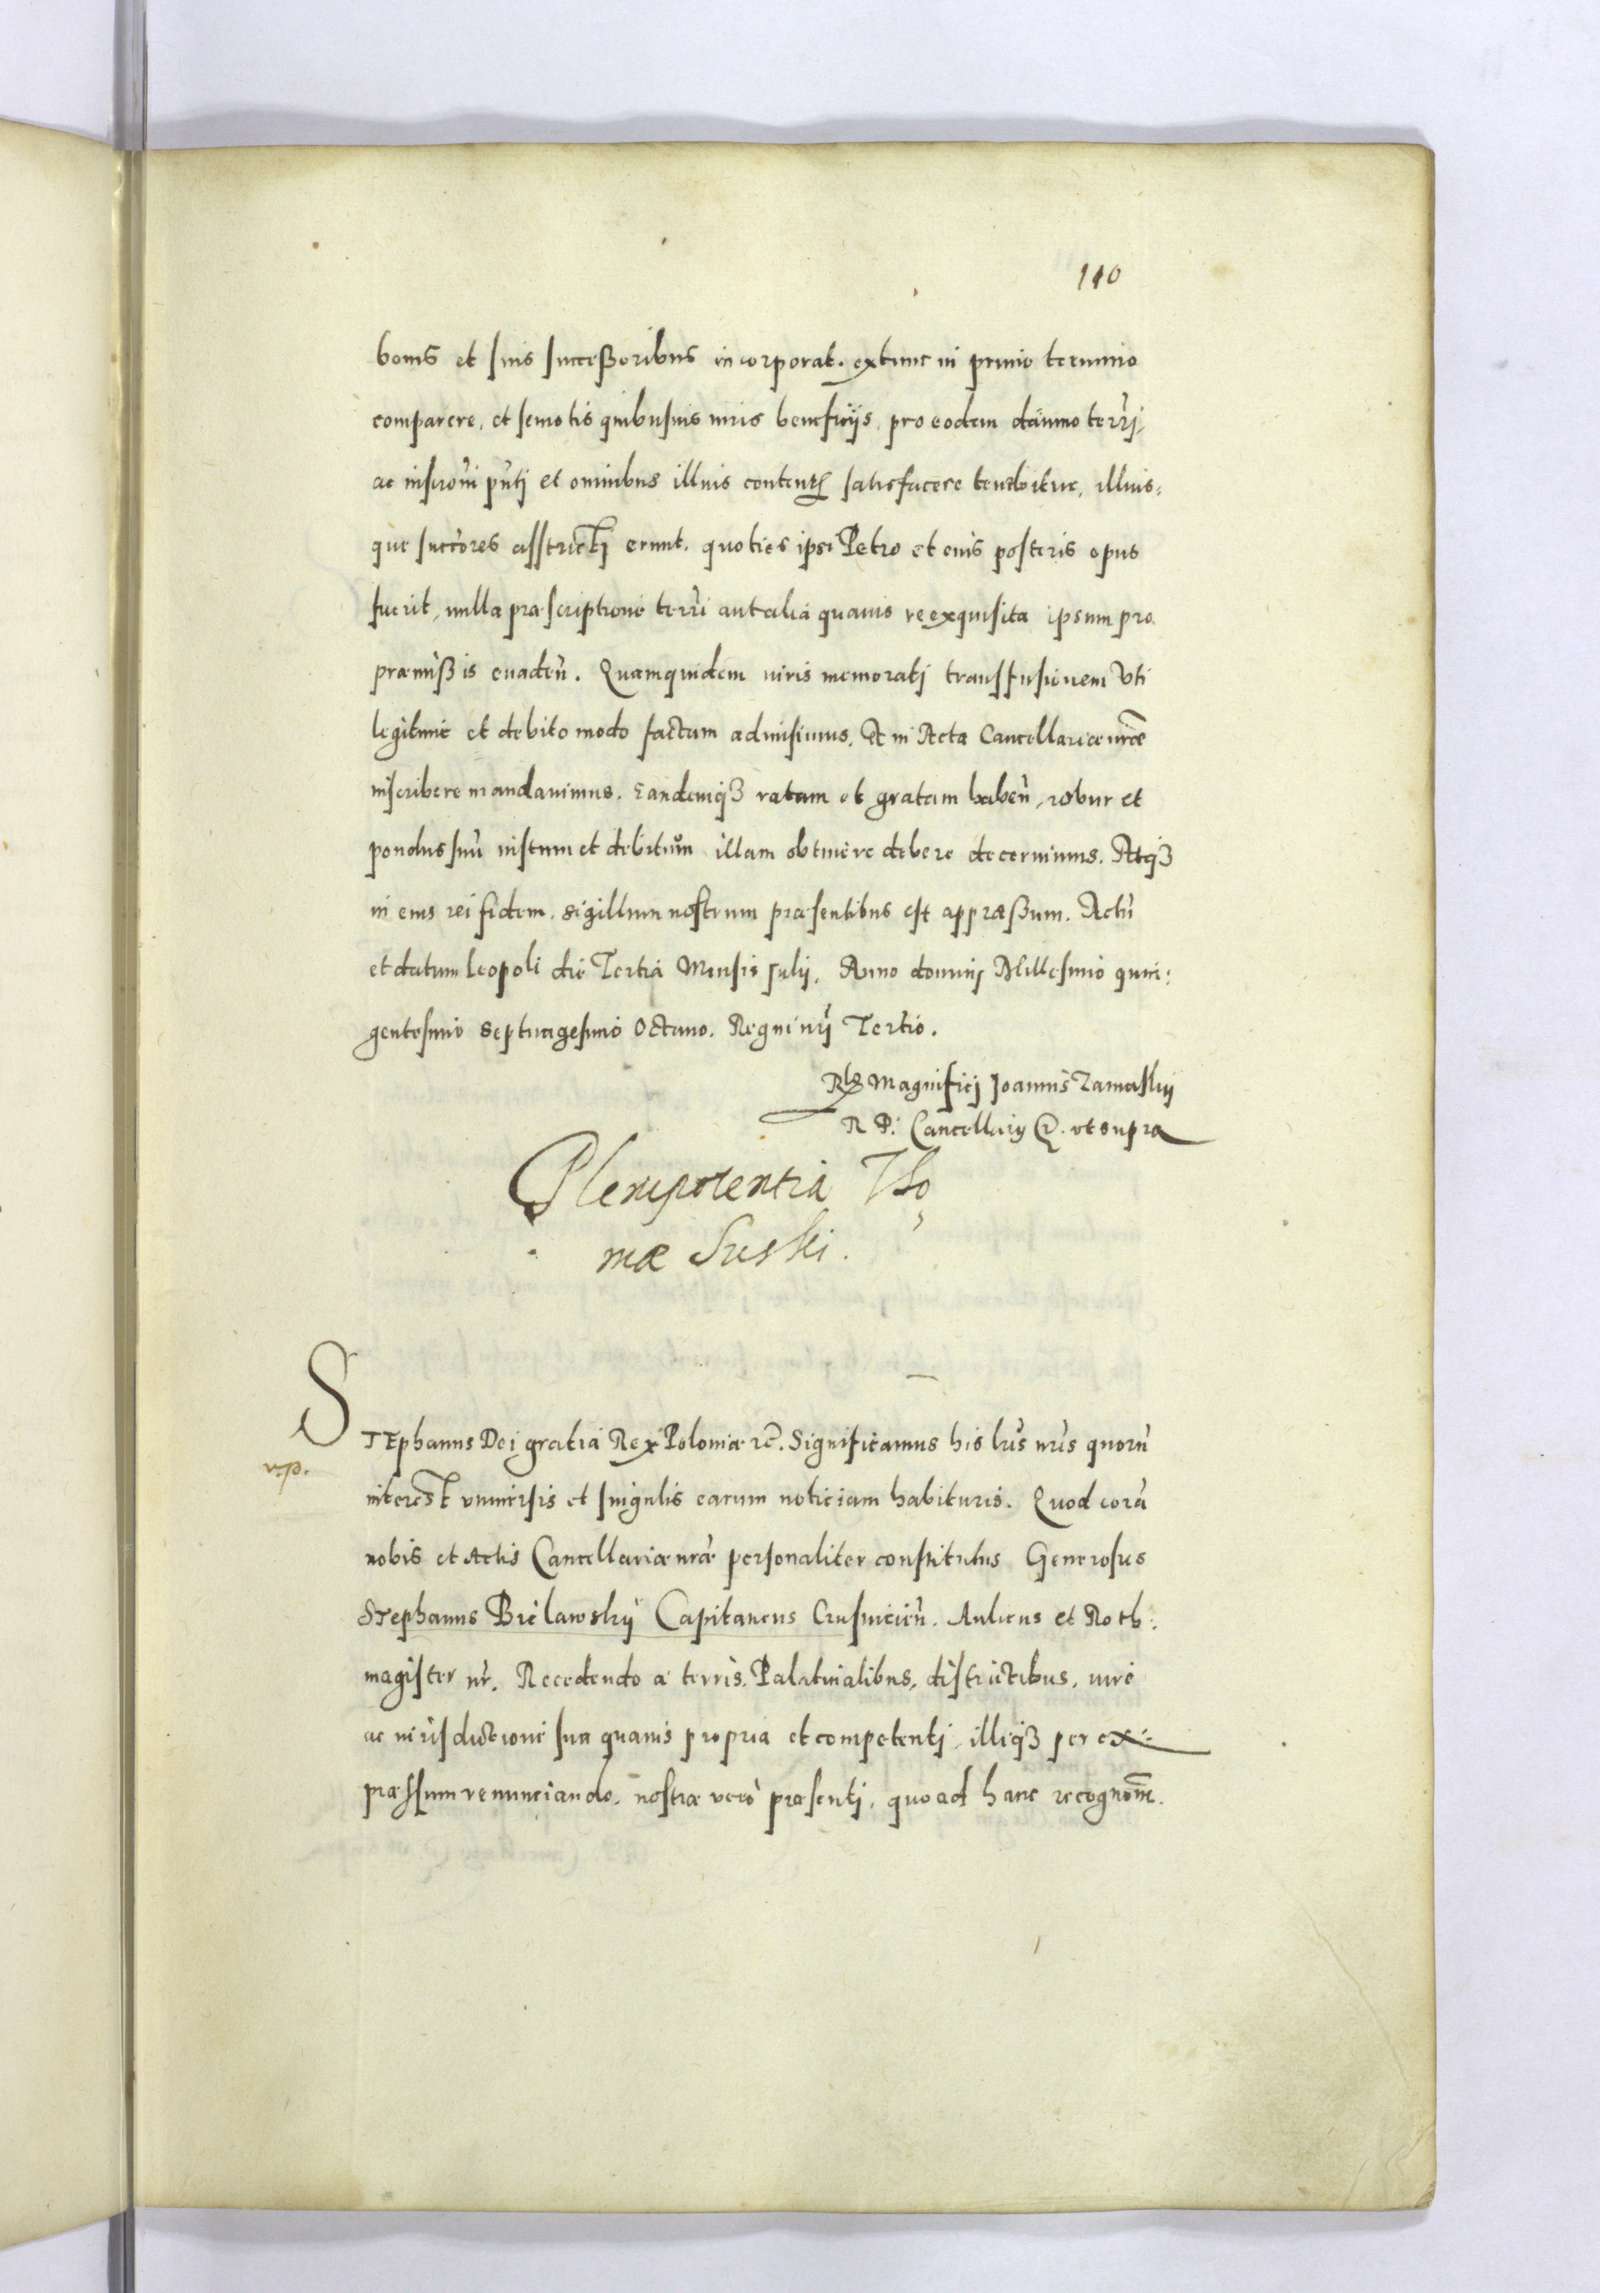 110
bonis et suis successoribus incorporat. extunc in primo termino
comparere, et semotis quibusuis iuris beneficijs, pro eodem damno terrj,
ac inscrōni pn̄tj et omnibus illius content, satisfacere tenebitur, illius=
que succores asstrictj erunt. quoties ipsi Petro et eius posteris opus
fuerit, nulla præscriptione terri aut alia quauis re exquisita ipsum pro
præmissis euaden̄. Quamquidem iuris memoratj transfusionem vti
legitime et debito modo factam admisimus, Et in Acta Cancellariæ nræ
inscribere mandauimus. Eandemq3 ratam et gratam haben̄, robur et
pondus suū iustum et debitum illam obtinere debere decernimus. Atq3
in eius rei fidem, sigillum nostrum præsentibus est appræssum. Actū
et datum Leopoli die Tertia Mensis Julij, Anno dominj Millesimo quin:
gentesimo Septuagesimo Octauo. Regni nrj Tertio.
Rlo Magnificj Joannis Zamoskij
R P. Cancellarij &. vt supra
Plenipotentia Tho,
mæ Suski.
STEphanus Dei gratia Rex Poloniæ rc̄. Significamus his lr̄is nr̄is quorū
v.p.
interest vniuersis et singulis earum noticiam habituris. Quod corā
nobis et Actis Cancellariæ nræ personaliter constitutus Generosus
STephanus Bielawskij Capitaneus Crusuicien̄. Aulicus et Roth:
magister nr. Recedendo a terris, Palatinalibus, districtibus, iure
ac iurisdictione sua quauis propria et competentj, illiq3 per ex:
præssum renunciando, nostræ vero præsentj, quo ad hanc recognōne.